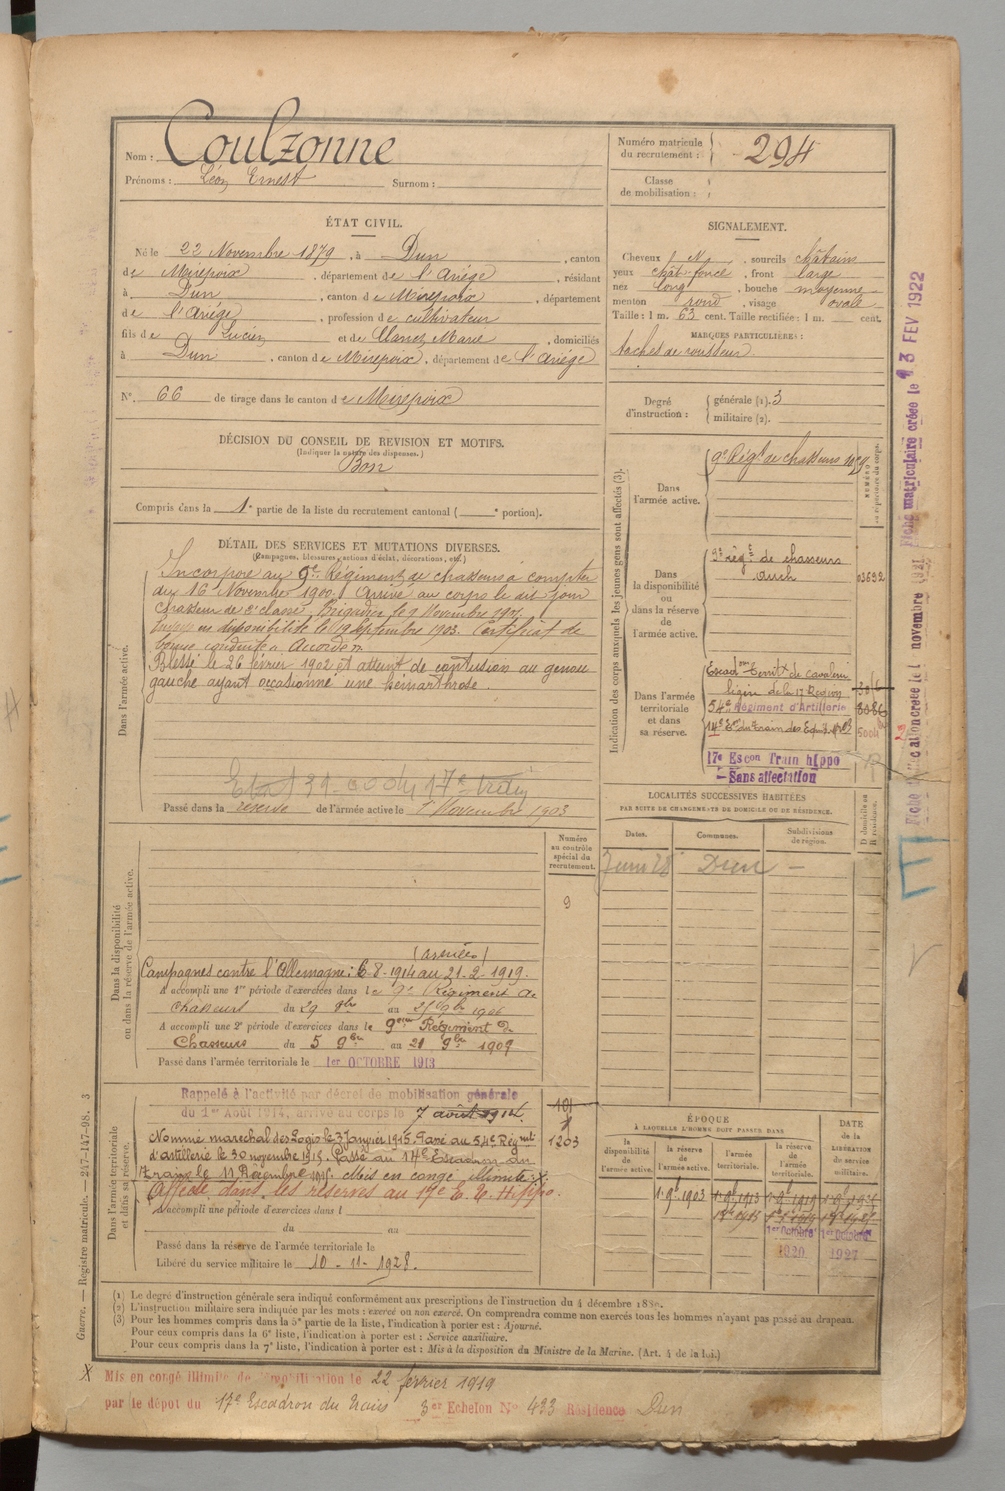 Nom : Coulzonne
Prénoms : Léon Ernest Surnom :
Numéro matricule
du recrutement : 294
Classe
de mobilisation :
ÉTAT CIVIL.
Né le 22 Novembre 1879, à Dun, canton
de Mirepoix, département de l'Ariège, résidant
à Dun, canton de Mirepoix, département
de l'Ariège, profession de cultivateur
fils de Lucien et de Marie, domiciliés
à Dun, canton de Mirepoix, département de l'Ariège
N° 66 de tirage dans le canton de Mirepoix
DÉCISION DU CONSEIL DE REVISION ET MOTIFS.
(Indiquer la nature des dispenses.)
Bon
Compris dans la 1e partie de la liste du recrutement cantonal ( e portion).
SIGNALEMENT.
Cheveux N, sourcils châtain
yeux chât foncé, front large
nez long, bouche moyenne
menton rond, visage ovale
Taille : 1 m. 63 cent. Taille rectifiée : 1 m. cent.
MARQUES PARTICULIÈRES :
taches de rousseur
Degré
d'instruction :
générale (1). 3
militaire (2).
DÉTAIL DES SERVICES ET MUTATIONS DIVERSES.
(Campagnes, blessures, actions d'éclat, décorations, etc.)
Dans l'armée active.
Incorporé au 9e Régiment de chasseurs à compter
du 16 Novembre 1900. Arrivé au corps le dit jour
chasseur de 2e classe, Brigadier le 9 Novembre 1901.
Envoyé en disponibilité le 19 Septembre 1903. Certificat de
bonne conduite « Accordé ».
Blessé le 26 février 1902 et atteint de contusion au genou
gauche ayant occasionné une hémarthrose.
Passé dans la réserve de l'armée active le 1 Novembre 1903
Indication des corps auxquels les jeunes gens sont affectés (3).
NUMÉRO
au répertoire du corps.
Dans
l'armée active.
9e Régt de chasseurs
Dans
la disponibilité
ou
dans la réserve
de
l'armée active.
9e régt de chasseurs
Auch
03692
Dans l'armée
territoriale
et dans
sa réserve.
Escad territ de cavalerie
légère de la 17 Région
54e Régiment d'Artillerie
14e Eon du Train des Equip.
17e Escon Train hippo
Sans affectation
LOCALITÉS SUCCESSIVES HABITÉES
PAR SUITE DE CHANGEMENTS DE DOMICILE OU DE RÉSIDENCE.
Dates. Communes. Subdivisions
de région.
D domicile ou
R résidence.
Juin 28 Dun -
Numéro
au contrôle
spécial du
recrutement.
9
Dans la disponibilité
ou dans la réserve de l'armée active.
(armées)
Campagnes contre l'Allemagne : 6-8-1914 au 21-2-1919.
A accompli une 1re période d'exercices dans le 9e Régiment de
Chasseurs du 29 8bre au 25 9bre 1906
A accompli une 2e période d'exercices dans le 9eme Régiment de
Chasseurs du 5 9bre au 21 9bre 1909
Passé dans l'armée territoriale le 1er OCTOBRE 1913
Dans l'armée territoriale
et dans sa réserve.
Rappelé à l'activité par décret de mobilisation générale
du 1er Août 1914, arrivé au corps le 7 août 1914.
Nommé maréchal des Logis le 3 Janvier 1915. Passé au 54e Régiment
d'artillerie le 30 novembre 1915. Passé au 14e Escadron du
Train le 11 Décembre 1915. Mis en congé illimité. X.
Affecté dans les réserves au 17e E. T. Hippo.
A accompli une période d'exercices dans l
du au
Passé dans la réserve de l'armée territoriale le
Libéré du service militaire le 10-11-1928.
1203
ÉPOQUE
À LAQUELLE L'HOMME DOIT PASSER DANS
la
disponibilité
de
l'armée active.
la réserve
de
l'armée active.
l'armée
territoriale.
la réserve
de
l'armée
territoriale.
DATE
de la
LIBÉRATION
du service
militaire.
1er 9bre 1903 1er 9bre 1913 1er 9bre 1919
1er Octobre 1er Octobre
1920 1927
(1) Le degré d'instruction générale sera indiqué conformément aux prescriptions de l'instruction du 4 décembre 1889.
(2) L'instruction militaire sera indiquée par les mots : exercé ou non exercé. On comprendra comme non exercés tous les hommes n'ayant pas passé au drapeau.
(3) Pour les hommes compris dans la 5e partie de la liste, l'indication à porter est : Ajourné.
Pour ceux compris dans la 6e liste, l'indication à porter est : Service auxiliaire.
Pour ceux compris dans la 7e liste, l'indication à porter est : Mis à la disposition du Ministre de la Marine. (Art. 4 de la loi.)
X Mis en congé illimité de démobilisation le 22 février 1919
par le dépot du 17e Escadron du Train 3er Echelon No 433 Résidence Dun
Guerre. — Registre matricule. — 247-147-98. 3
Fiche matriculaire créée le 13 FEV 1922
novembre 1921